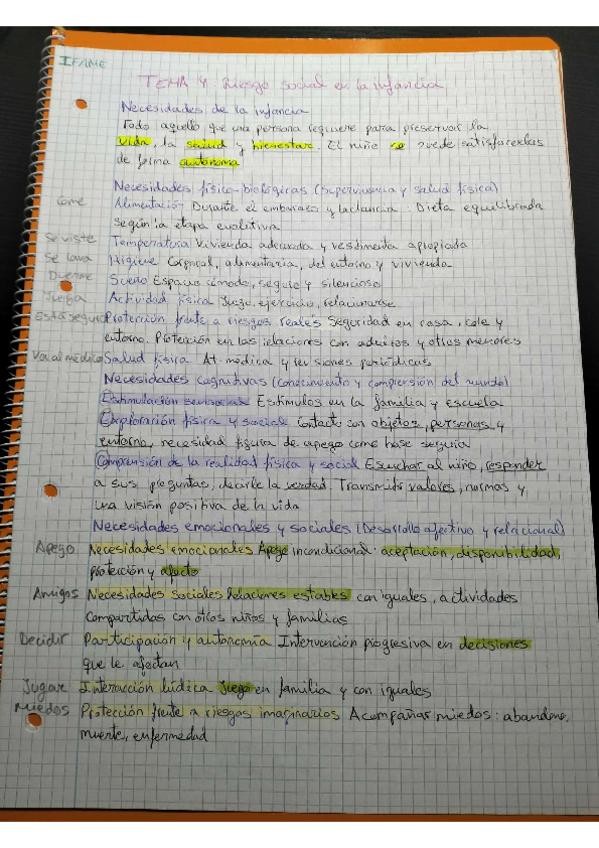 IFAME
TEMA 4: Riesgo social en la infancia
Necesidades de la infancia
Todo aquello que una persona requiere para preservar la
vida, la salud y bienestar. El niño no puede satisfacerlas
de forma autónoma
Necesidades físico-biológicas (Supervivencia y salud física)
Come Alimentación Durante el embarazo y lactancia. Dieta equilibrada
según la etapa evolutiva
Se viste Temperatura Vivienda adecuada y vestimenta apropiada
Se lava Higiene Corporal, alimentaria, del entorno y vivienda
Duerme Sueño Espacio cómodo, seguro y silencioso
Juega Actividad física Juego, ejercicio, relacionarse
Está seguro Protección frente a riesgos reales Seguridad en casa, cole y
entorno. Protección en las relaciones con adultos y otros menores
Va al médico Salud física At. médica y revisiones periódicas
Necesidades cognitivas (Conocimiento y comprensión del mundo)
Estimulación sensorial Estímulos en la familia y escuela
Exploración física y social Contacto con objetos, personas y
entorno, necesidad figura de apego como base segura
Comprensión de la realidad física y social Escuchar al niño, responder
a sus preguntas, decirle la verdad Transmitir valores, normas y
una visión positiva de la vida
Necesidades emocionales y sociales (Desarrollo afectivo y relacional)
Apego Necesidades emocionales Apego incondicional: aceptación, disponibilidad,
protección y afecto
Amigos Necesidades sociales Relaciones estables con iguales, actividades
compartidas con otros niños y familias
Decidir Participación y autonomía Intervención progresiva en decisiones
que le afectan
Jugar Interacción lúdica Juego en familia y con iguales
Miedos Protección frente a riesgos imaginarios Acompañar miedos: abandono,
muerte, enfermedad